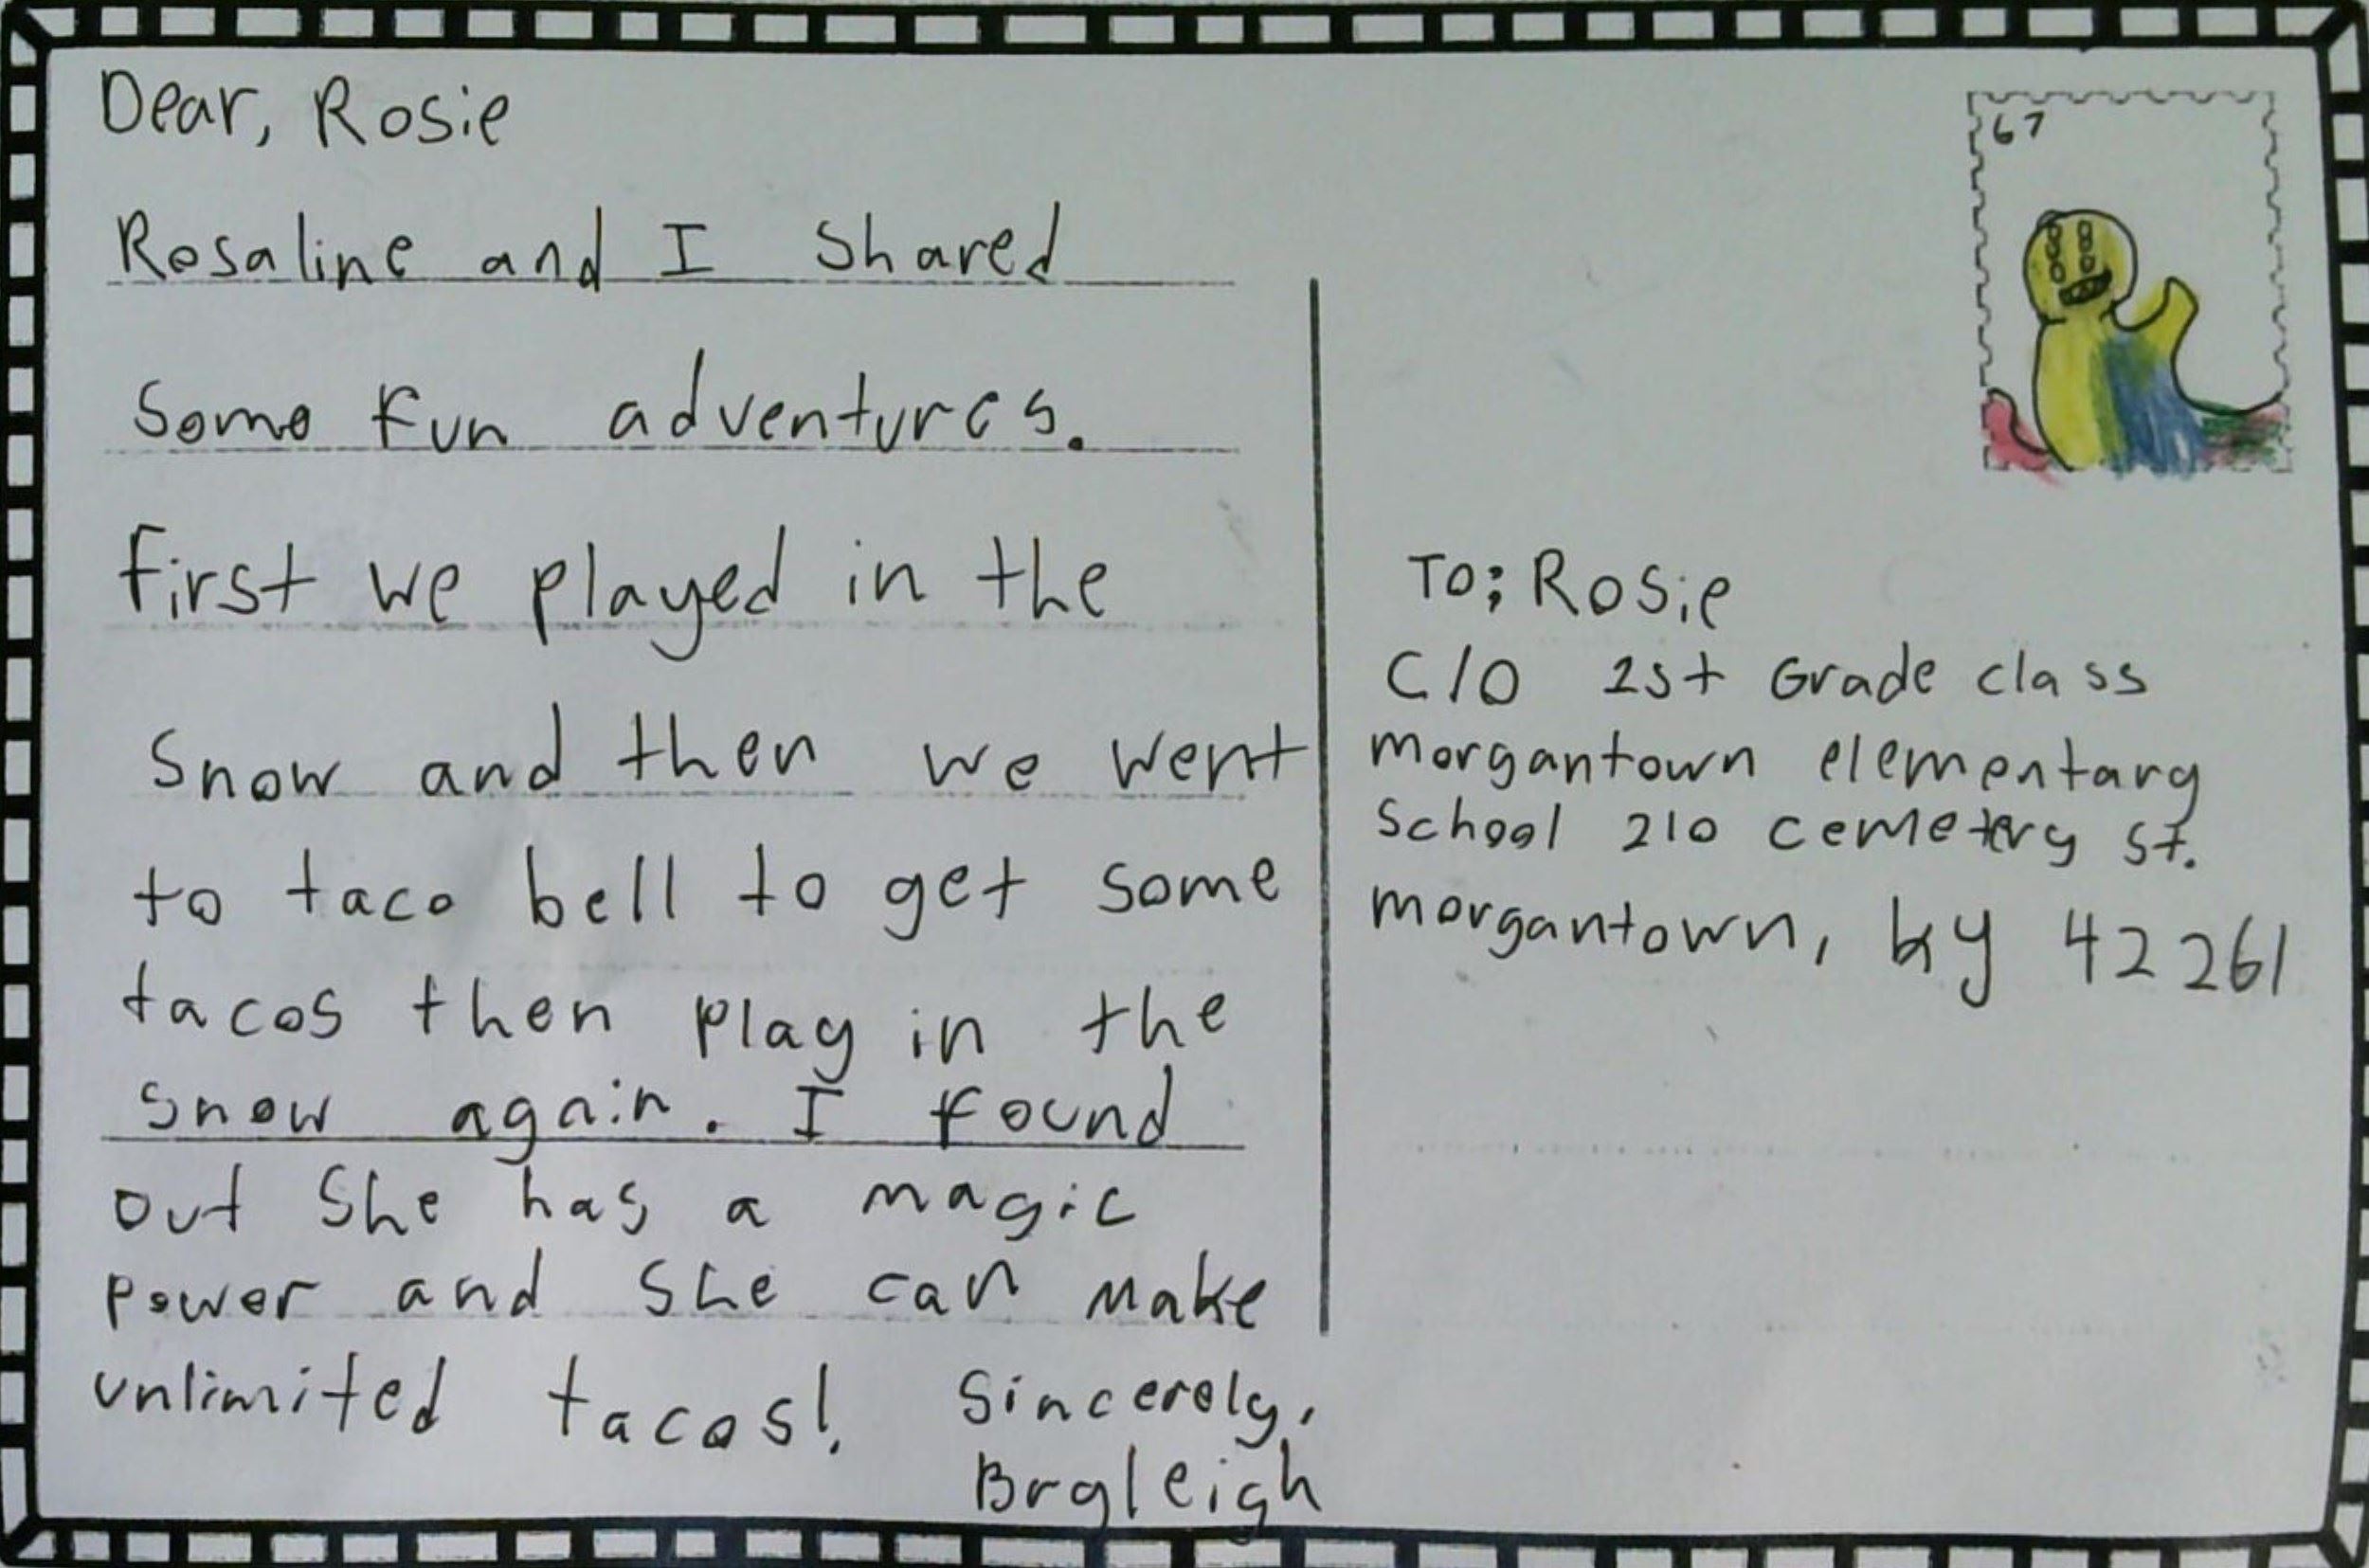 Dear, Rosie
Rosaline and I shared
some fun adventures.
first we played in the
snow and then we went
to taco bell to get some
tacos then play in the
snow again. I found
out she has a magic
power and she can make
unlimited tacos!
Sincerely,
Bryleigh
67
To; Rosie
C/O 1st Grade class
morgantown elementary
school 210 cemetery st.
morgantown, ky 42261